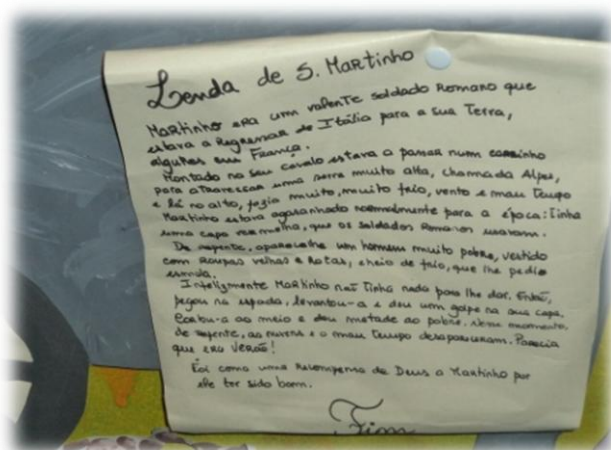 Lenda de S. Martinho
Martinho era um valente soldado romano que
estava a regressar de Itália para a sua Terra,
algures em França.
Montado no seu cavalo estava a passar num caminho
para atravessar uma serra muito alta, chamada Alpes,
e lá no alto, fazia muito, muito frio, vento e mau tempo
Martinho estava agasanhado normalmente para a época: Tinha
uma capa vermelha, que os soldados romanos usavam.
De repente, aparece-lhe um homem muito pobre, vestido
com roupas velhas e rotas, cheio de frio, que lhe pediu
esmola.
Infelizmente Martinho não Tinha nada para lhe dar. Então,
pegou na espada, levantou-a e deu um golpe na sua capa.
Cortou-a ao meio e deu metade ao pobre. Nesse momento,
de repente, as nuvens e o mau tempo desapareceram. Parecia
que era Verão!
Foi como uma recompensa de Deus a Martinho por
ele ter sido bom.
Fim